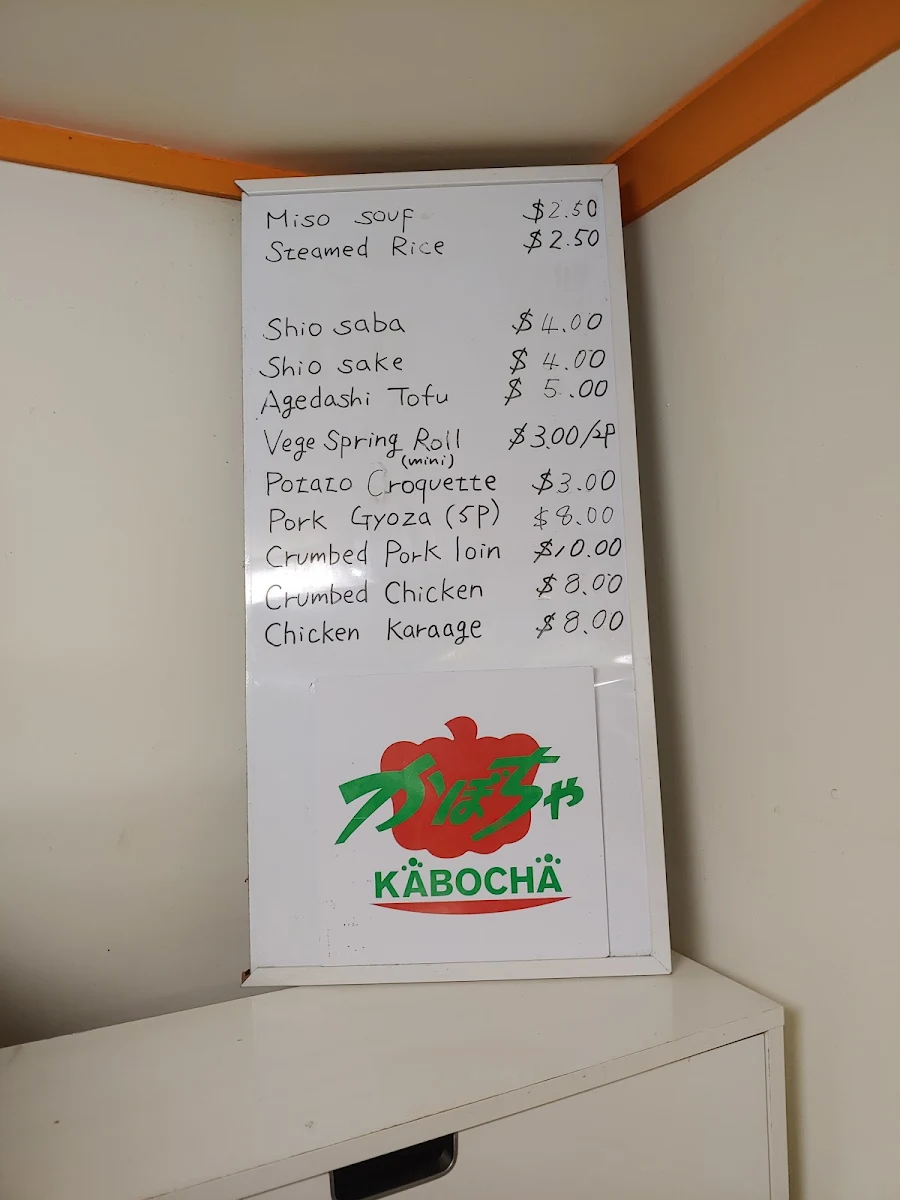 Miso soup $2.50
Steamed Rice $2.50
Shio saba $4.00
Shio sake $4.00
Agedashi Tofu $5.00
Vege Spring Roll $3.00/2P
(mini)
Potato Croquette $3.00
Pork Gyoza (5P) $8.00
Crumbed Pork loin $10.00
Crumbed Chicken $8.00
Chicken Karaage $8.00
かぼちゃ
KÄBOCHÄ